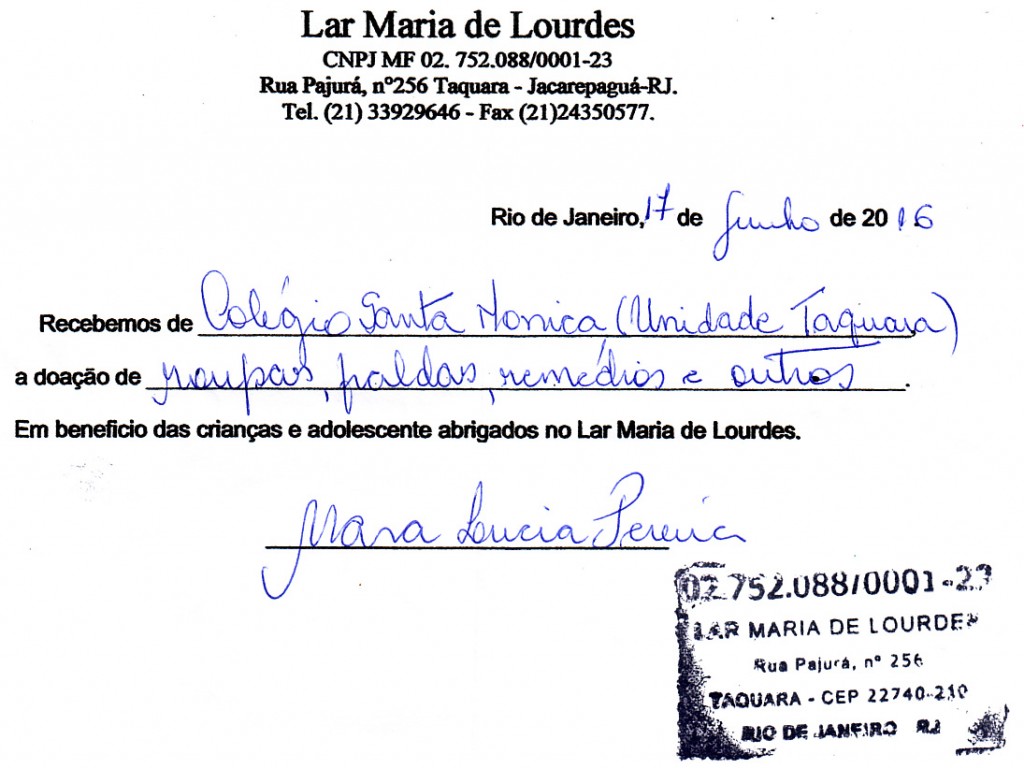 Lar Maria de Lourdes
CNPJ MF 02. 752.088/0001-23
Rua Pajurá, nº256 Taquara - Jacarepaguá-RJ.
Tel. (21) 33929646 - Fax (21)24350577.
Rio de Janeiro, 17 de Junho de 2016
Recebemos de Colégio Santa Monica (Unidade Taquara)
a doação de roupas, fraldas, remédios e outros.
Em beneficio das crianças e adolescente abrigados no Lar Maria de Lourdes.
Mara Lucia Pereira
02.752.088/0001-23
LAR MARIA DE LOURDES
Rua Pajurá, nº 256
TAQUARA - CEP 22740-210
RIO DE JANEIRO RJ